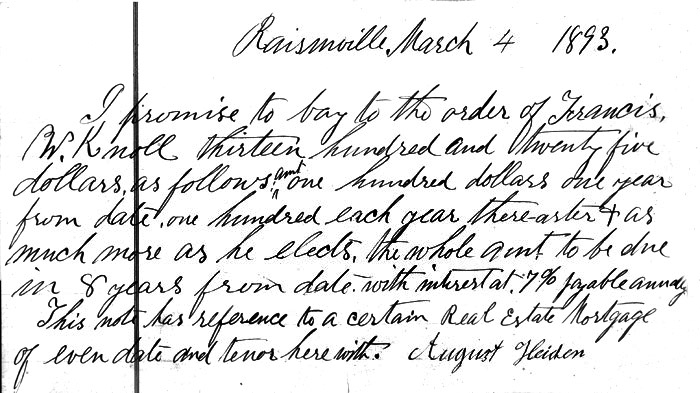 Raisinville, March 4 1893.
I promise to bay to the order of Francis,
W. Knoll thirteen hundred and twenty five
dollars, as follows: amt one hundred dollars one year
from date, one hundred each year thereaster & as
much more as he elects, the whole amt to be due
in 8 years from date. with interest at 7% payable annualy
This note has reference to a certain Real Estate Mortgage
of even date and tenor here with. August Heiden